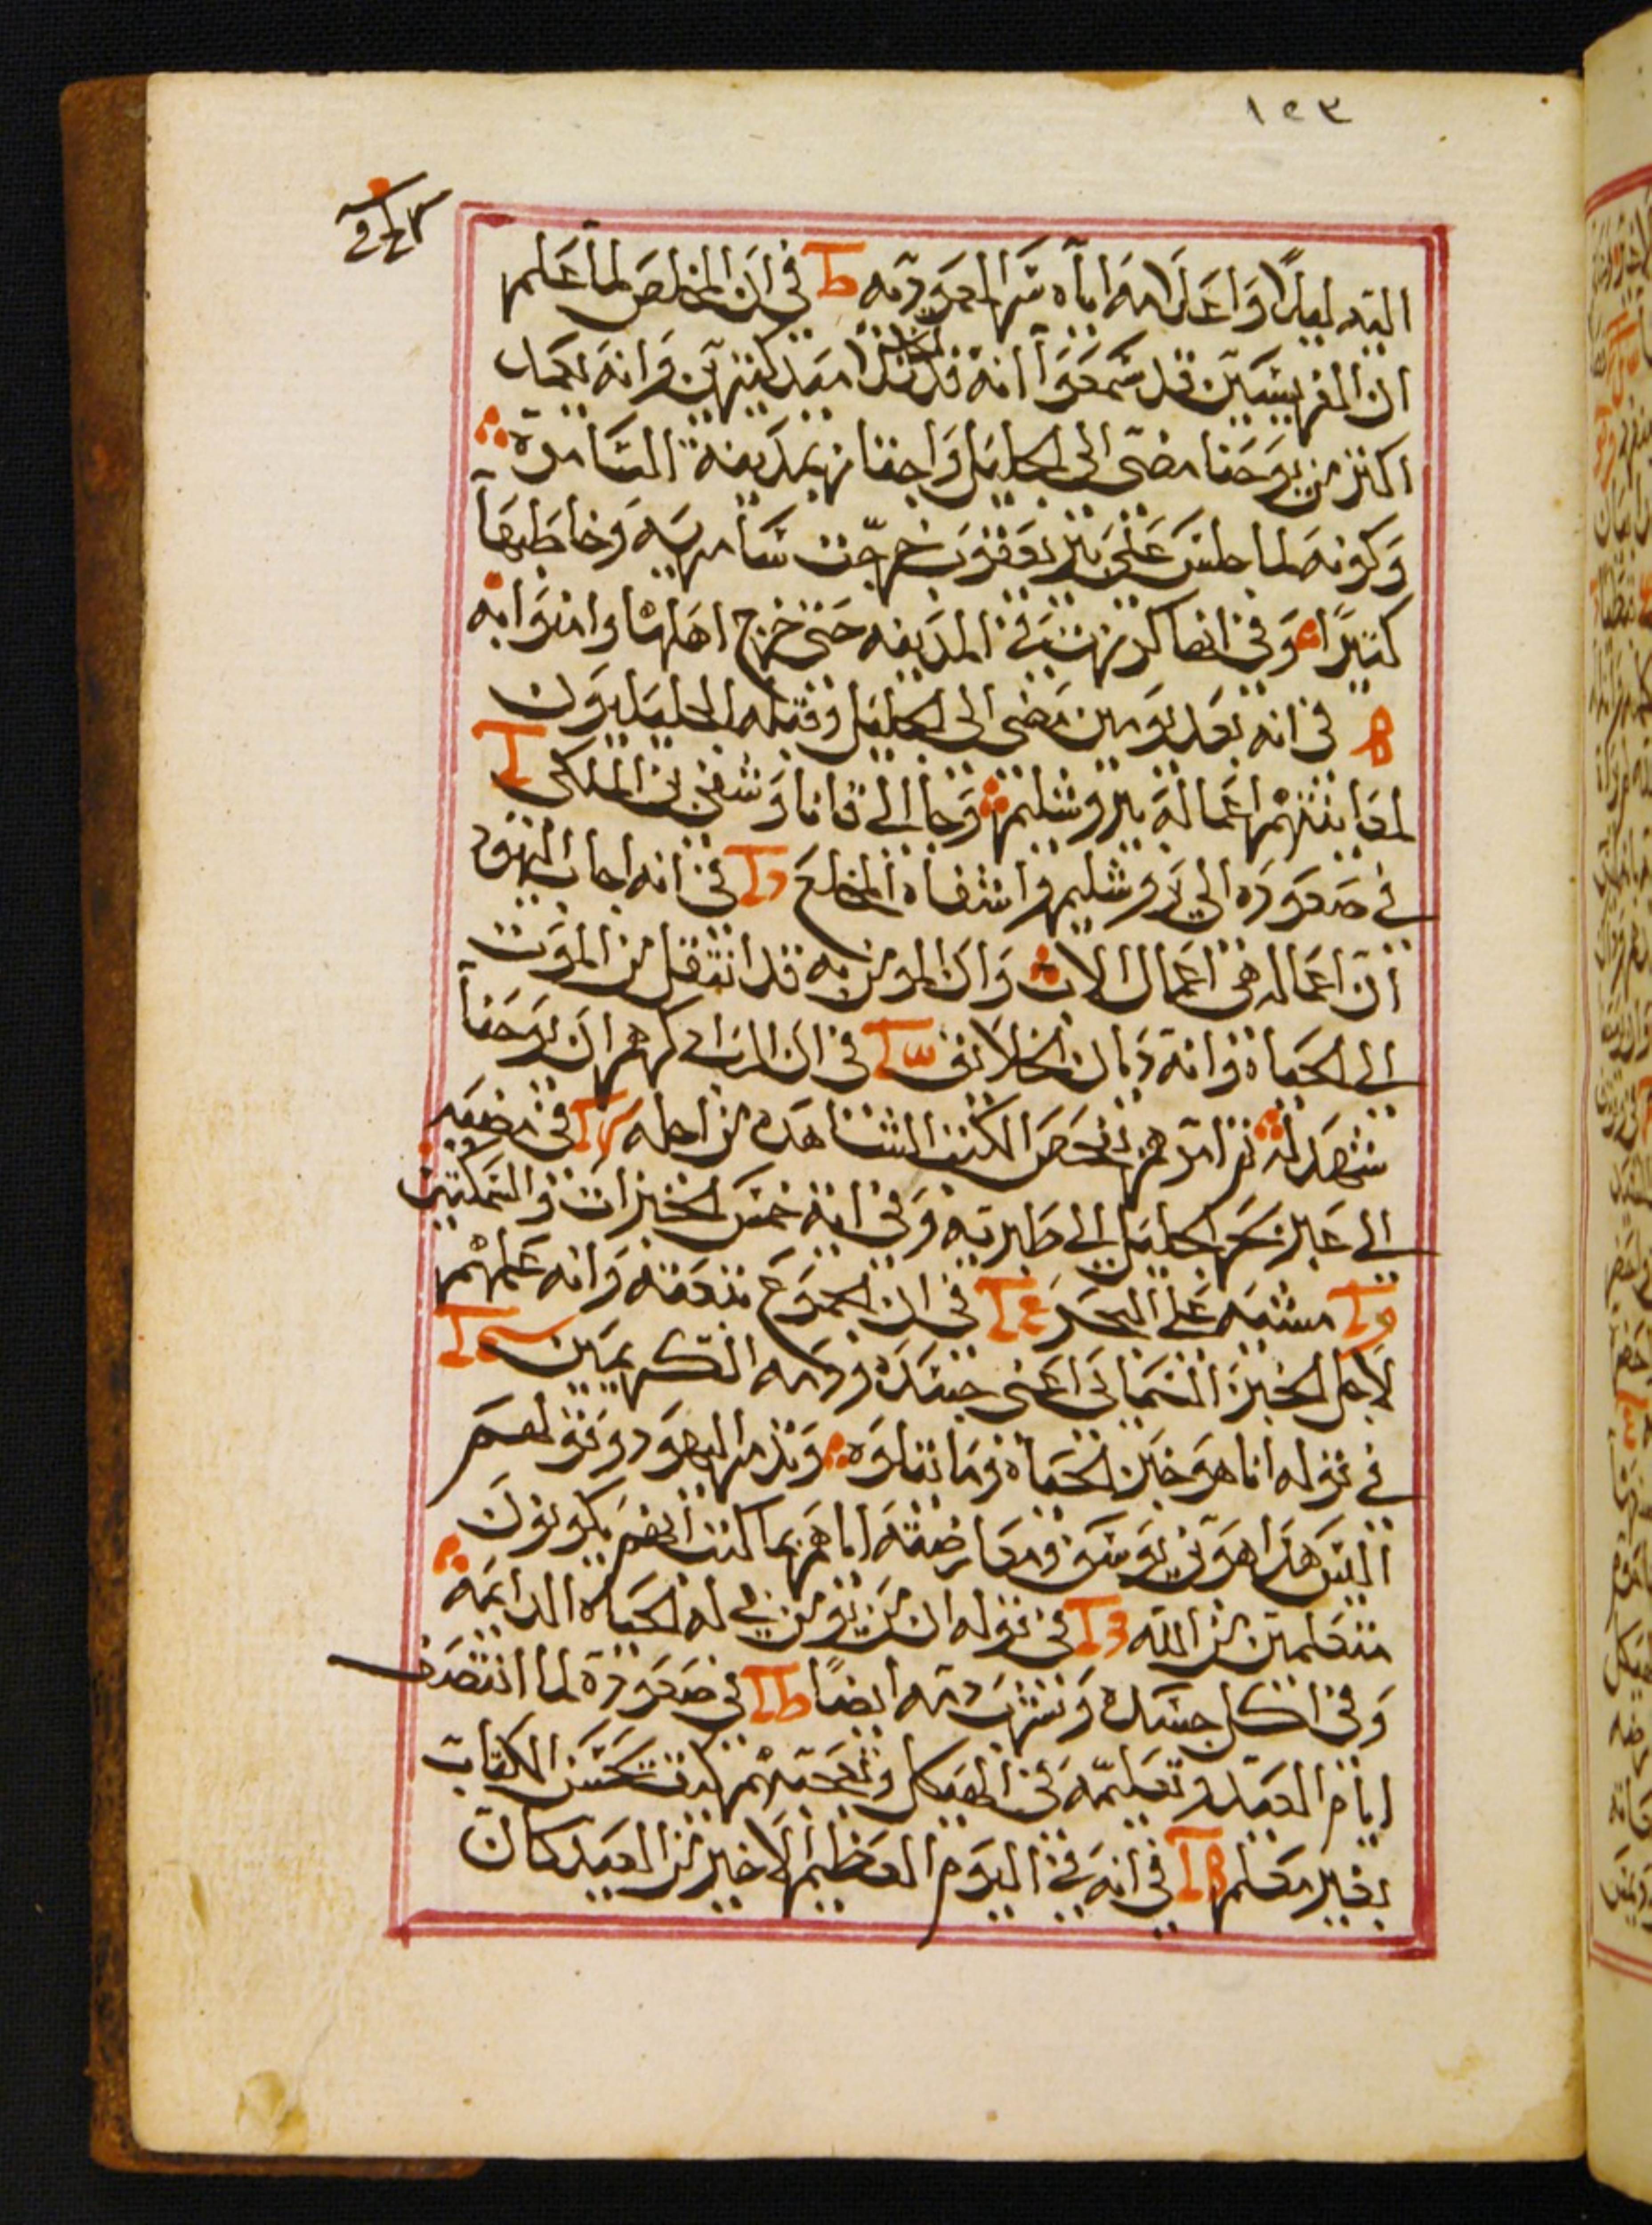 ١٢٣
اليه ليلًا واعلامه اياه سر المعموديه في ان المخلص لما علم
ان الفريسيين قد سمعوا انه قد تلمذ كثيرين وانه يعمد
اكثر من يوحنا مضى الى الجليل واجتاز بمدينة السامرة
وكونه لما جلس على بير يعقوب خرجت سامريه وخاطبها
كثيرًا وفي انها كرزت في المدينه حتى خرج اهلها وامنوا به
في انه بعد يومين مضى الى الجليل وقبله الجليليون
لمعاينتهم اعماله بيروشليم وجا الى قانا وشفى بن الملكي
في صعوده الى يروشليم واشفاه المخلع في انه اجاب اليهود
ان اعماله هي اعمال الاب وان المومن به قد انتقل من الموت
الى الحياه وانه ديان الخلايق في ان الرب اذكرهم ان يوحنا
شهد له ثم امرهم بفحص الكتب الشاهده من اجله في مضيه
الى عبر بحر الجليل الى طبريه وفي اية خمس الخبزات والسمكتين
مشيه على البحر في ان الجموع تتبعته وانه علمهم
لاجل الخبز السمائي اعني جسده ودمه الكريمين
في قوله انا هو خبز الحياه وما يتلوه وتذمر اليهود وقولهم
اليس هذا هو بن يوسف ومعارضته اياهم بما كتب انهم يكونون
متعلمين من الله في قوله ان من يومن بي له الحياه الدايمه
وفي اكل جسده وشرب دمه ايضًا في صعوده لما انتصف
ايام العيد وتعليمه في الهيكل وتعجبهم كيف يحسن الكتاب
بغير معلم في انه في اليوم العظيم الاخير من العيد كان